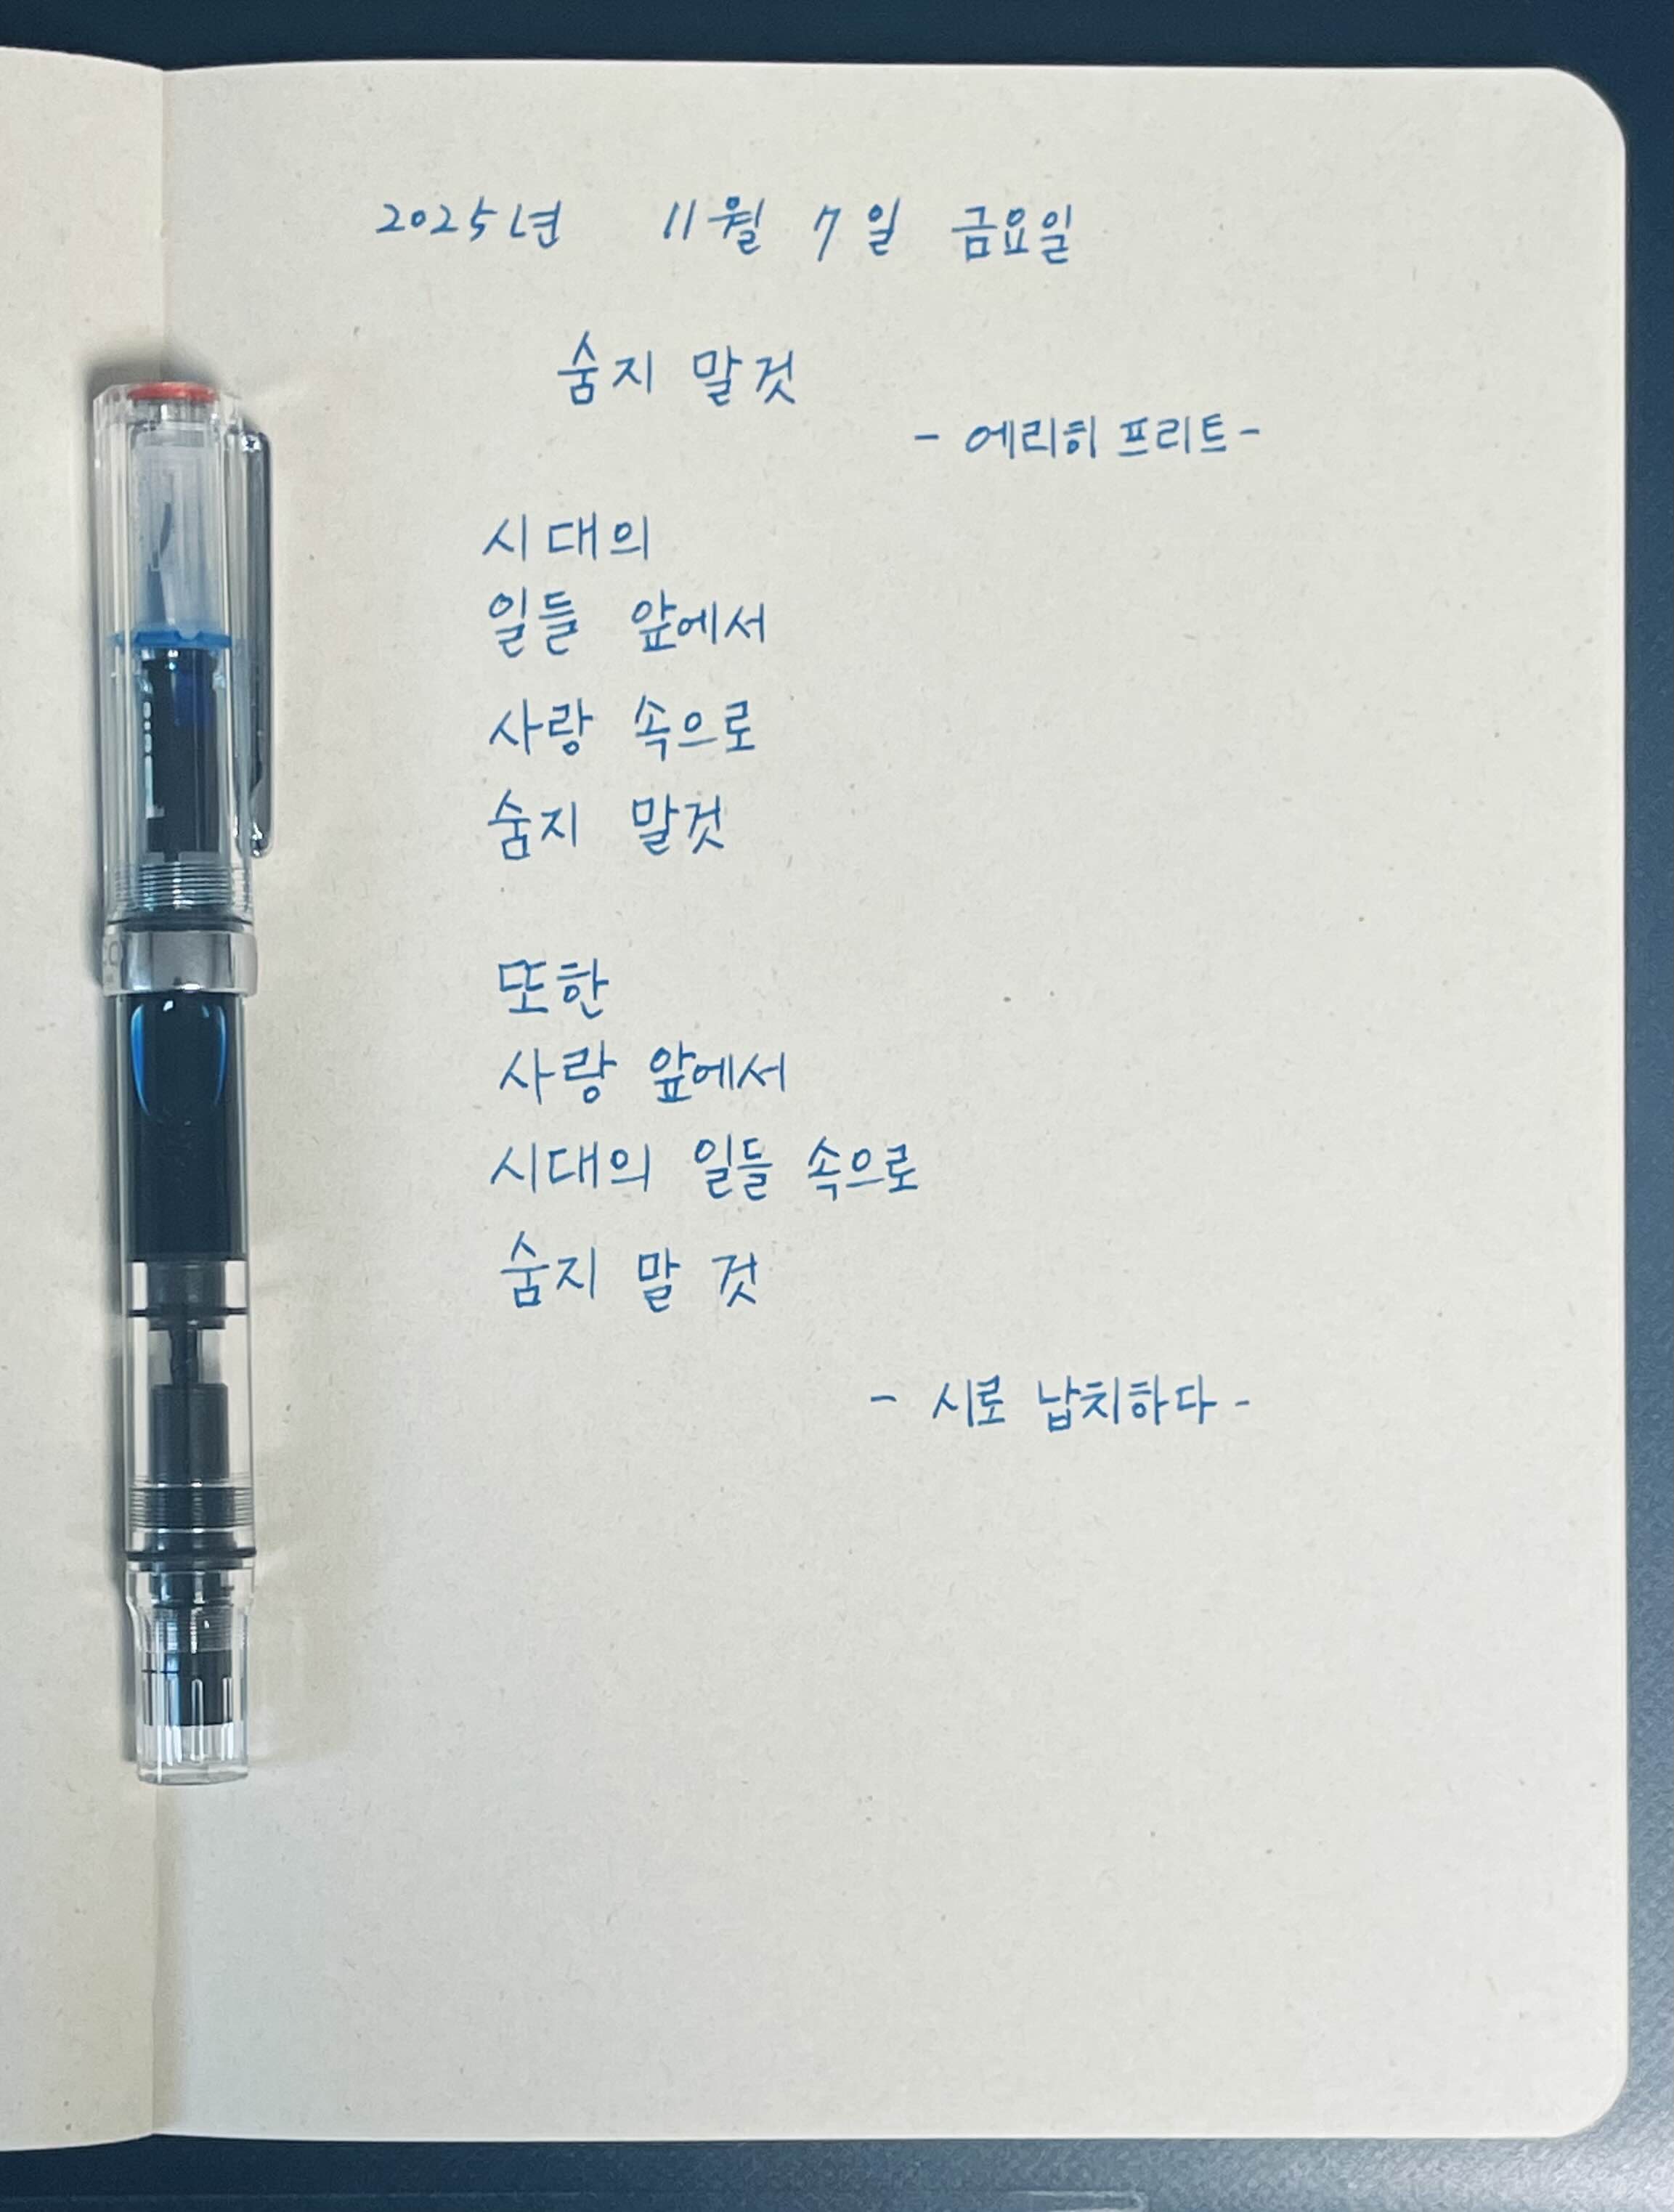 2025년 11월 7일 금요일
숨지 말것
- 에리히 프리트 -
시대의
일들 앞에서
사랑 속으로
숨지 말것
또한
사랑 앞에서
시대의 일들 속으로
숨지 말 것
- 시로 납치하다 -